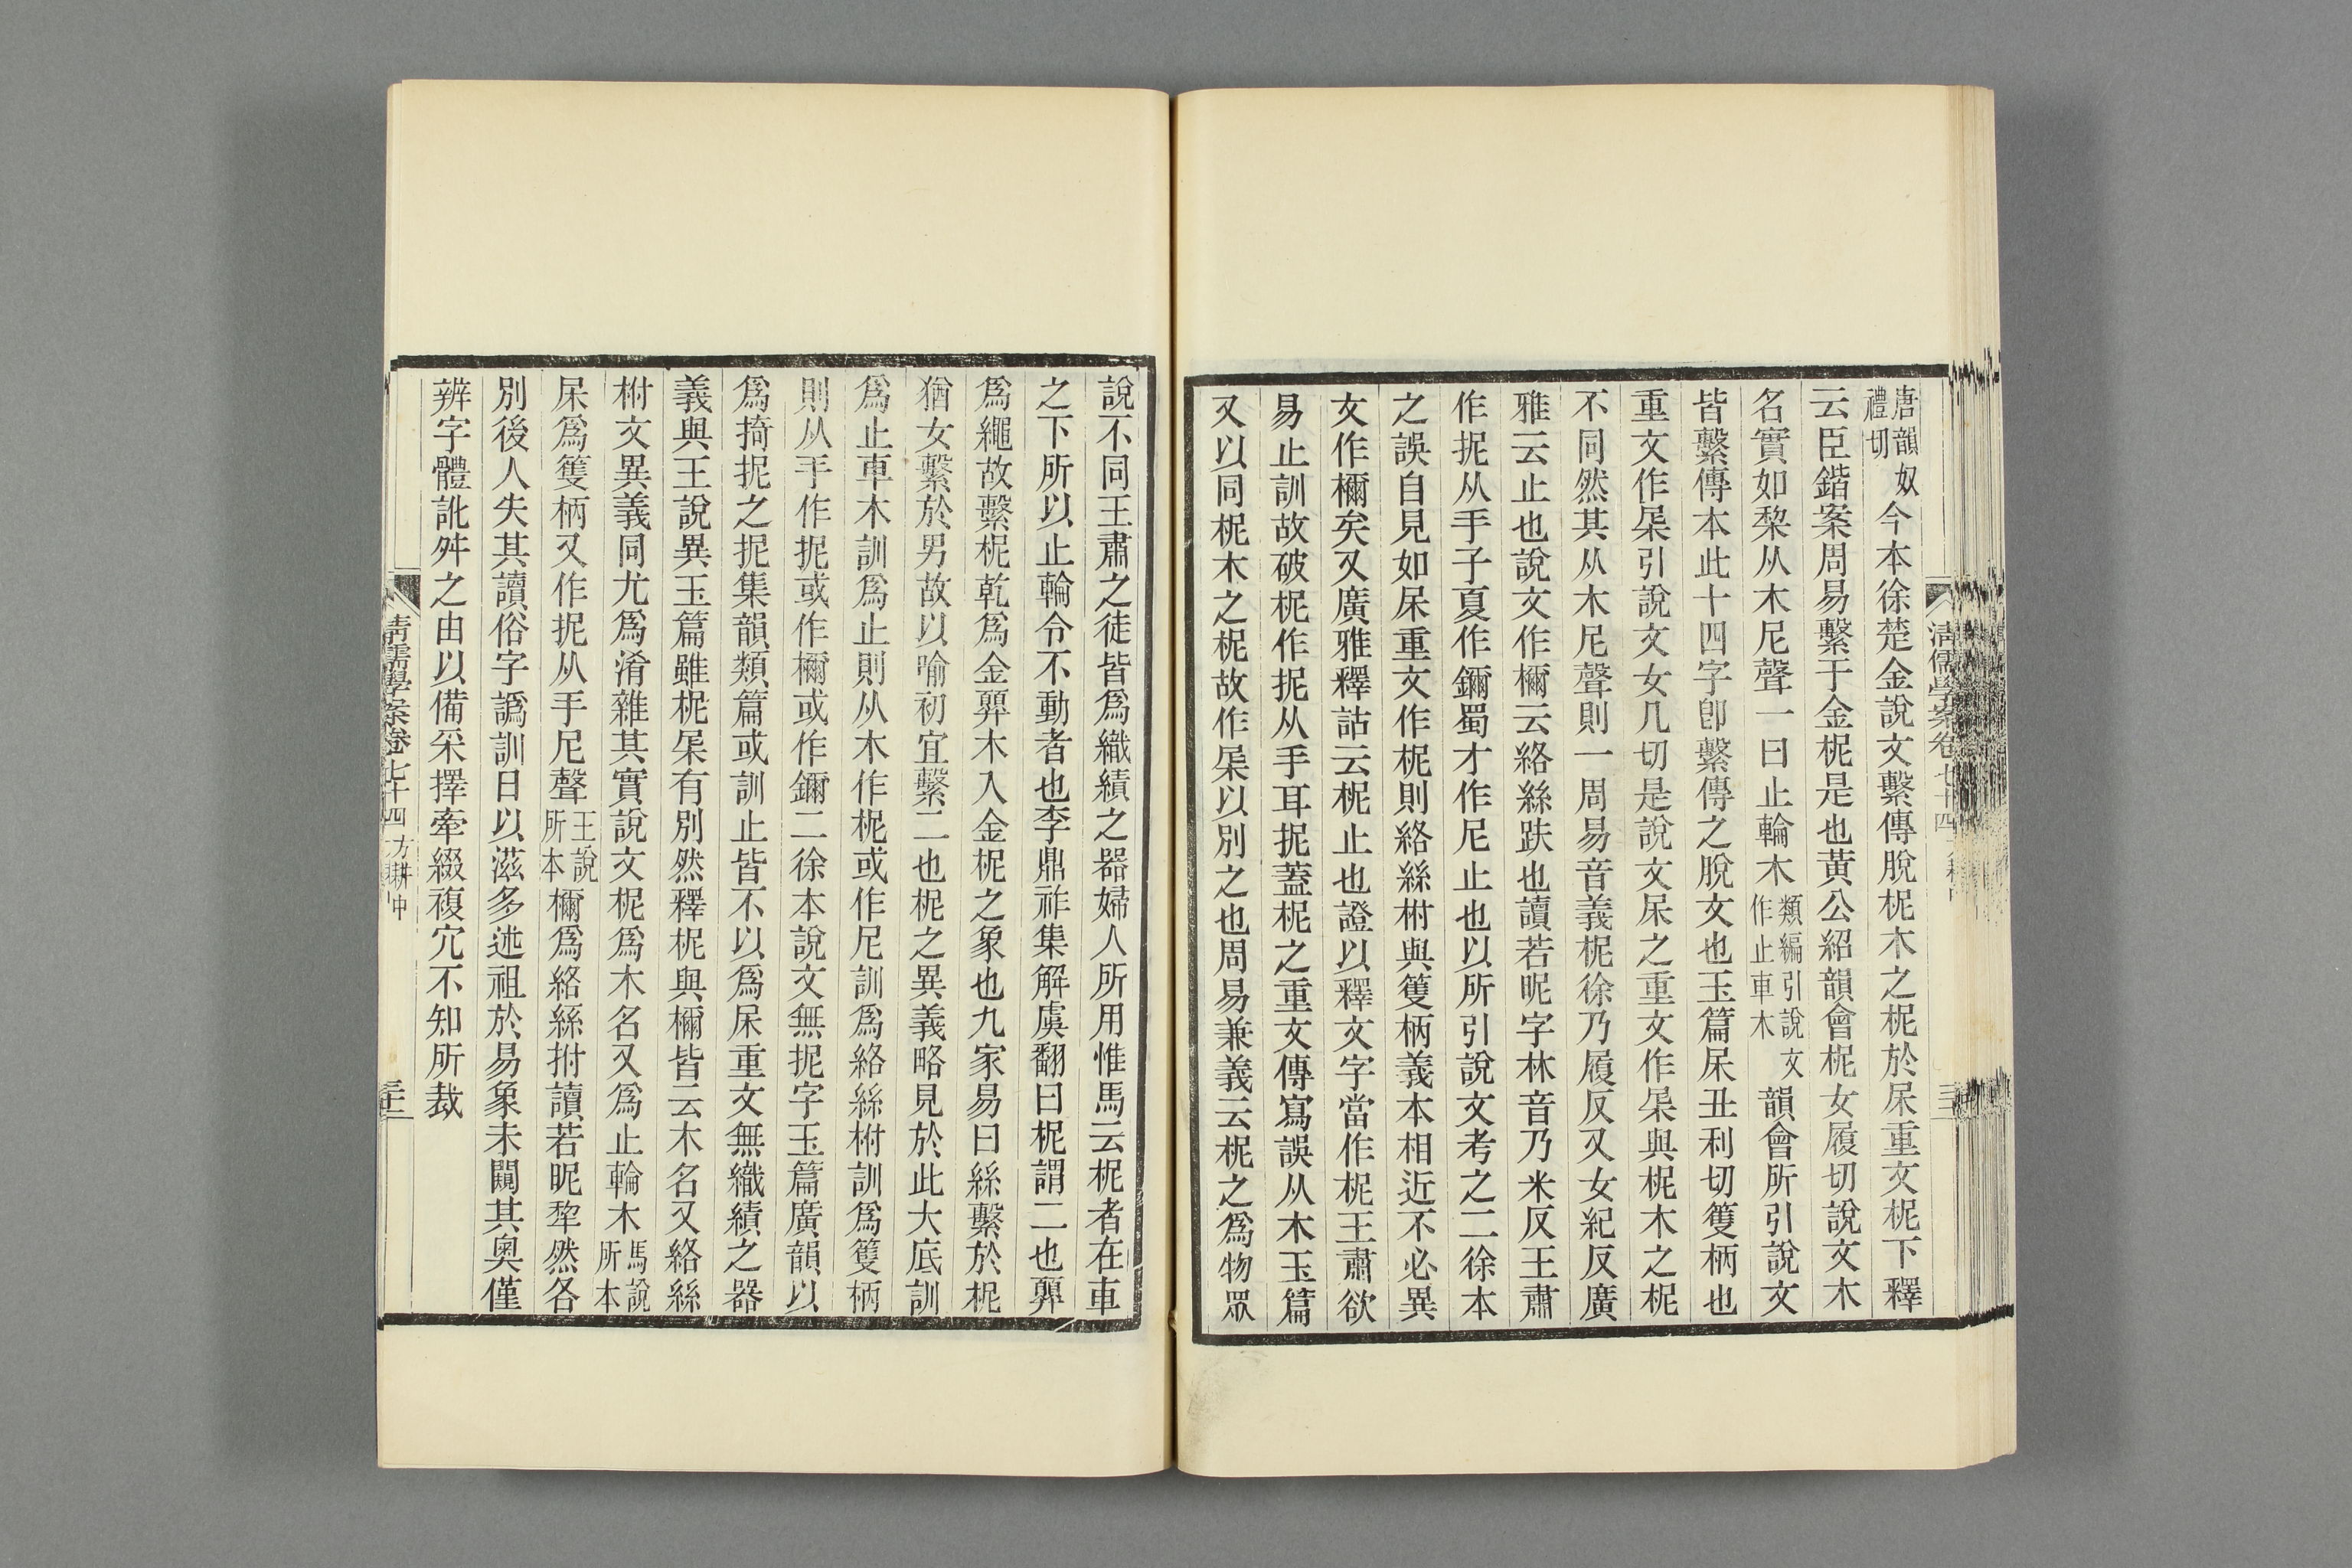 唐韻奴禮切今本徐楚金說文繫傳脫柅木之柅於㞡重文柅下釋
云臣鍇案周易繫于金柅是也黃公紹韻會柅女履切說文木
名實如棃从木尼聲一曰止輪木類編引說文作止車木韻會所引說文
皆繫傳本此十四字卽繫傳之脫文也玉篇㞡丑利切籆柄也
重文作杘引說文女几切是說文㞡之重文作杘與柅木之柅
不同然其从木尼聲則一周易音義柅徐乃履反又女紀反廣
雅云止也說文作檷云絡絲趺也讀若昵字林音乃米反王肅
作抳从手子夏作鑈蜀才作尼止也以所引說文考之二徐本
之誤自見如㞡重文作柅則絡絲柎與籆柄義本相近不必異
文作檷矣又廣雅釋詁云柅止也證以釋文字當作柅王肅欲
易止訓故破柅作抳从手耳抳蓋柅之重文傳寫誤从木玉篇
又以同柅木之柅故作杘以別之也周易兼義云柅之爲物眾
說不同王肅之徒皆爲織績之器婦人所用惟馬云柅者在車
之下所以止輪令不動者也李鼎祚集解虞翻曰柅謂二也巽
爲繩故繫柅乾爲金巽木入金柅之象也九家易曰絲繫於柅
猶女繫於男故以喻初宜繫二也柅之異義略見於此大底訓
爲止車木訓爲止則从木作柅或作尼訓爲絡絲柎訓爲籆柄
則从手作抳或作檷或作鑈二徐本說文無抳字玉篇廣韻以
爲掎抳之抳集韻類篇或訓止皆不以爲㞡重文無織績之器
義與王說異玉篇雖柅杘有別然釋柅與檷皆云木名又絡絲
柎文異義同尤爲淆雜其實說文柅爲木名又爲止輪木馬說所本
㞡爲籆柄又作抳从手尼聲王說所本檷爲絡絲拊讀若昵犂然各
別後人失其讀俗字譌訓日以滋多述祖於易象未闚其奧僅
辨字體訛舛之由以備采擇牽綴複宂不知所裁
清儒學案卷七十四 方耕中